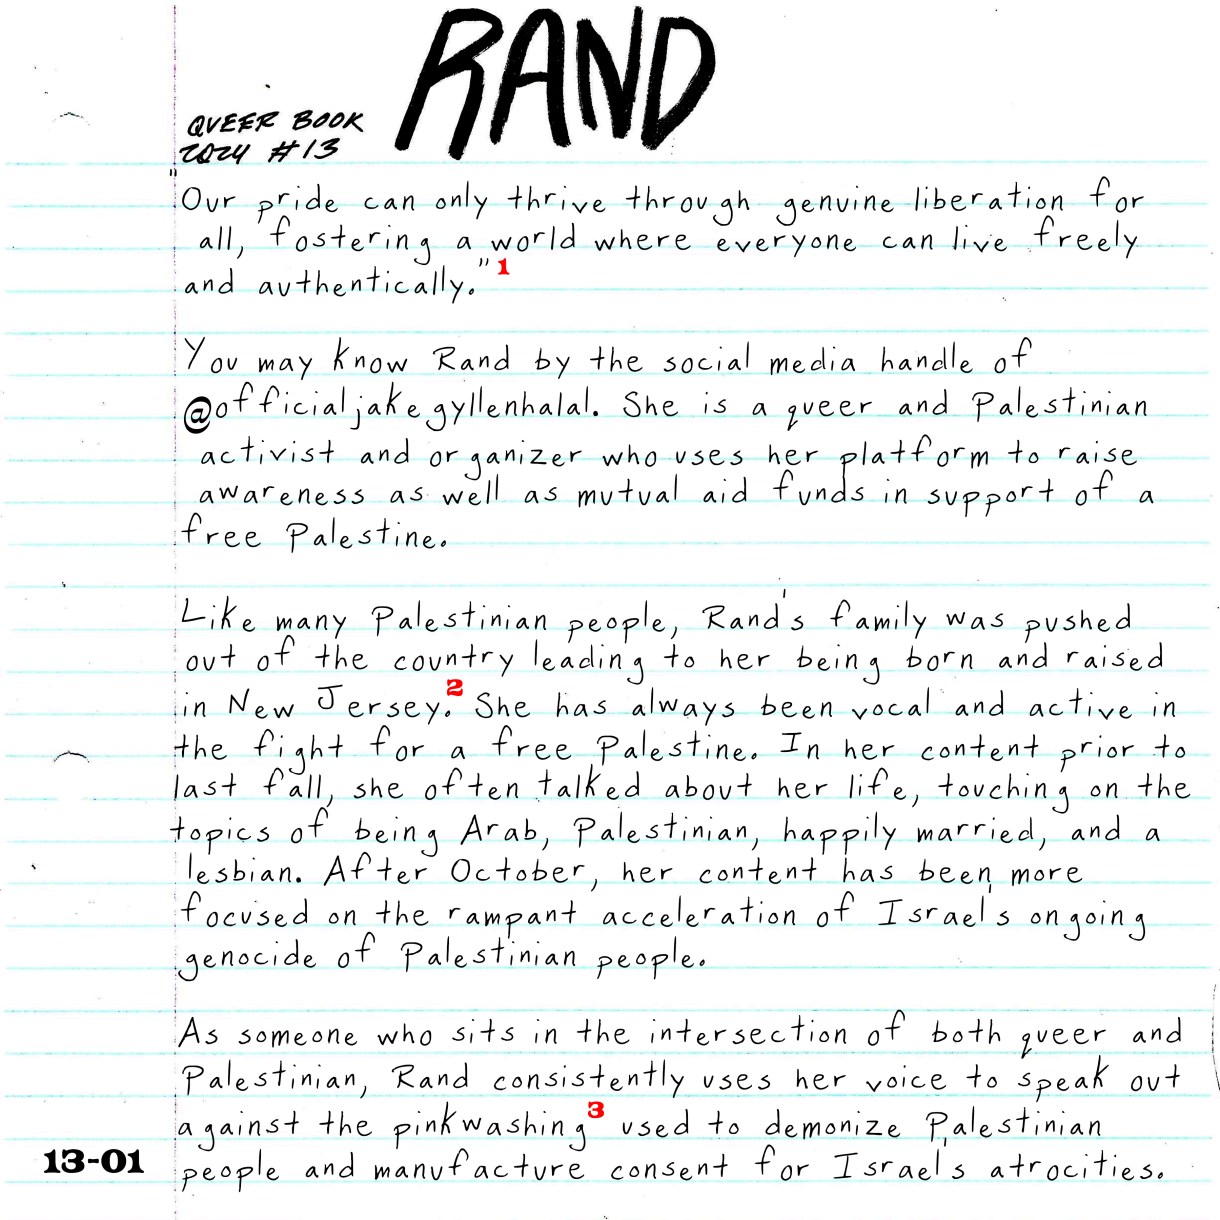 RAND
QUEER BOOK
2024 #13
"Our pride can only thrive through genuine liberation for
all, fostering a world where everyone can live freely
and authentically."1
You may know Rand by the social media handle of
@officialjakegyllenhalal. She is a queer and Palestinian
activist and organizer who uses her platform to raise
awareness as well as mutual aid funds in support of a
free Palestine.
Like many Palestinian people, Rand's family was pushed
out of the country leading to her being born and raised
in New Jersey.2 She has always been vocal and active in
the fight for a free Palestine. In her content prior to
last fall, she often talked about her life, touching on the
topics of being Arab, Palestinian, happily married, and a
lesbian. After October, her content has been more
focused on the rampant acceleration of Israel's ongoing
genocide of Palestinian people.
As someone who sits in the intersection of both queer and
Palestinian, Rand consistently uses her voice to speak out
against the pinkwashing3 used to demonize Palestinian
people and manufacture consent for Israel's atrocities.
13-01